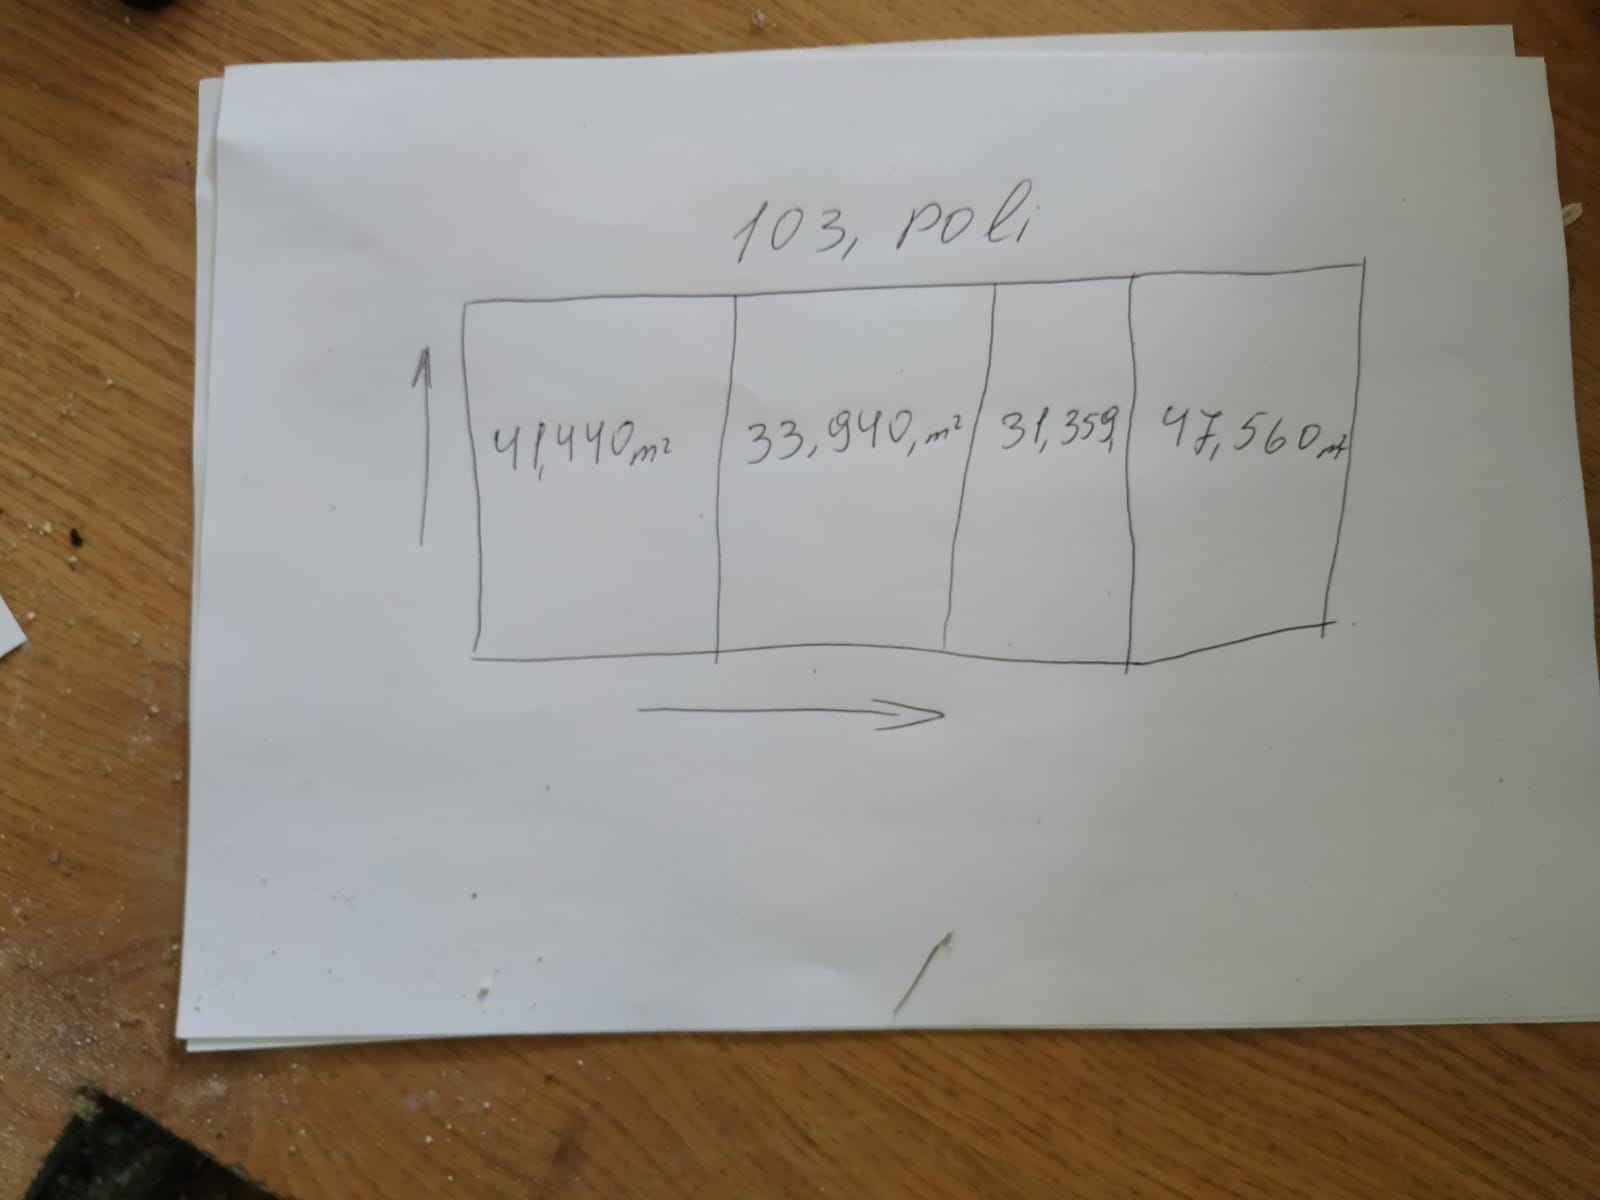 103, poli
41,440,m² 33,940,m² 31,359, 47,560,m²